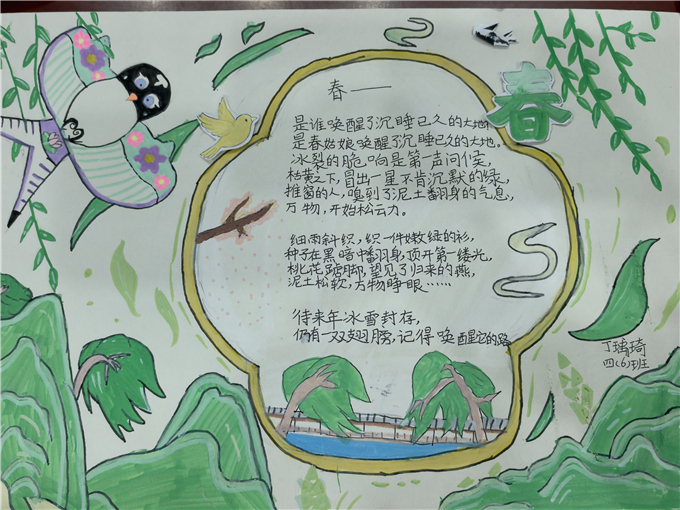 春——
春
是谁唤醒了沉睡已久的大地
是春姑娘唤醒了沉睡已久的大地。
冰裂的脆响是第一声问候,
枯黄之下,冒出一星不肯沉默的绿,
推窗的人,嗅到了泥土翻身的气息,
万物,开始松云力。
细雨斜织,织一件嫩绿的衫,
种子在黑暗中翻身,顶开第一缕光,
桃花踮脚,望见了归来的燕,
泥土松软,万物睁眼……
待来年冰雪封存,
仍有一双翅膀,记得唤醒它的路
丁璃琦
四(6)班